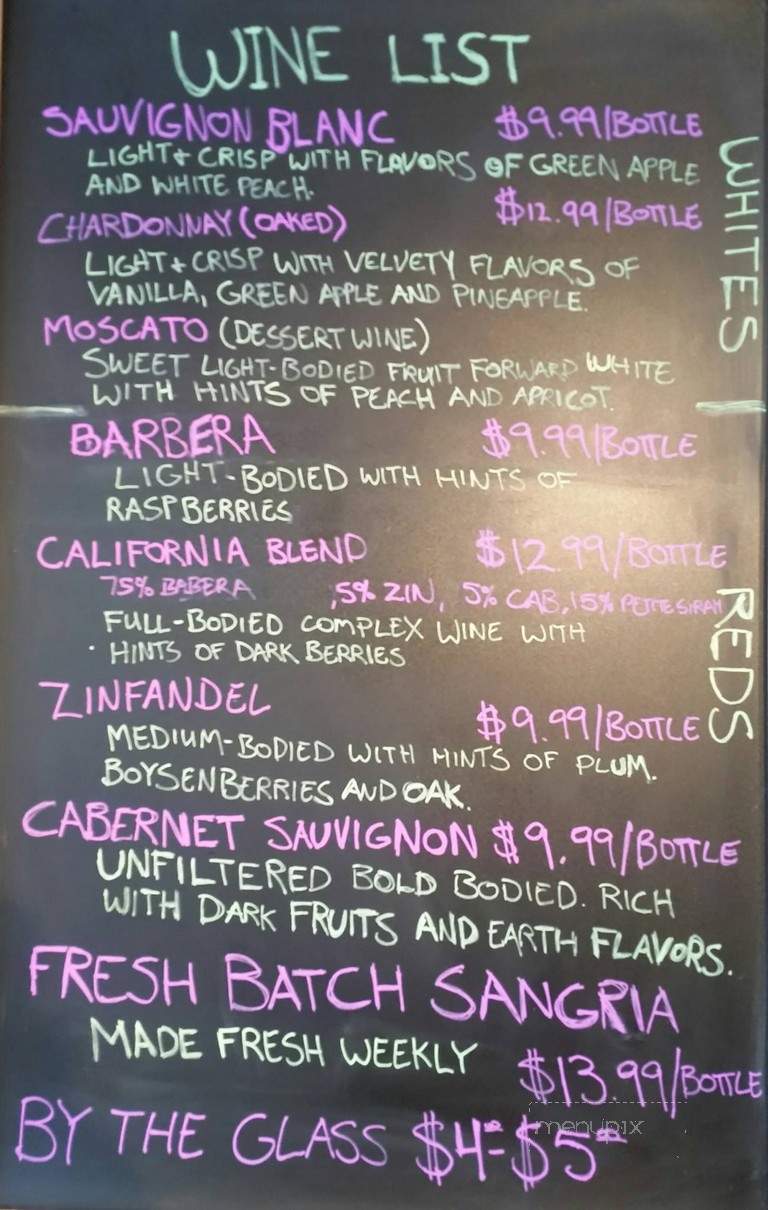 WINE LIST
SAUVIGNON BLANC $9.99/BOTTLE
LIGHT + CRISP WITH FLAVORS OF GREEN APPLE
AND WHITE PEACH.
CHARDONNAY (OAKED) $12.99/BOTTLE
LIGHT + CRISP WITH VELVETY FLAVORS OF
VANILLA, GREEN APPLE AND PINEAPPLE.
MOSCATO (DESSERT WINE)
SWEET LIGHT-BODIED FRUIT FORWARD WHITE
WITH HINTS OF PEACH AND APRICOT.
WHITES
BARBERA $9.99/BOTTLE
LIGHT-BODIED WITH HINTS OF
RASPBERRIES
CALIFORNIA BLEND $12.99/BOTTLE
75% BABERA ,5% ZIN, 5% CAB, 15% PETITE SIRAH
FULL-BODIED COMPLEX WINE WITH
HINTS OF DARK BERRIES
ZINFANDEL $9.99/BOTTLE
MEDIUM-BODIED WITH HINTS OF PLUM.
BOYSENBERRIES AND OAK.
REDS
CABERNET SAUVIGNON $9.99/BOTTLE
UNFILTERED BOLD BODIED. RICH
WITH DARK FRUITS AND EARTH FLAVORS.
FRESH BATCH SANGRIA
MADE FRESH WEEKLY $13.99/BOTTLE
BY THE GLASS $4-$5
menupix